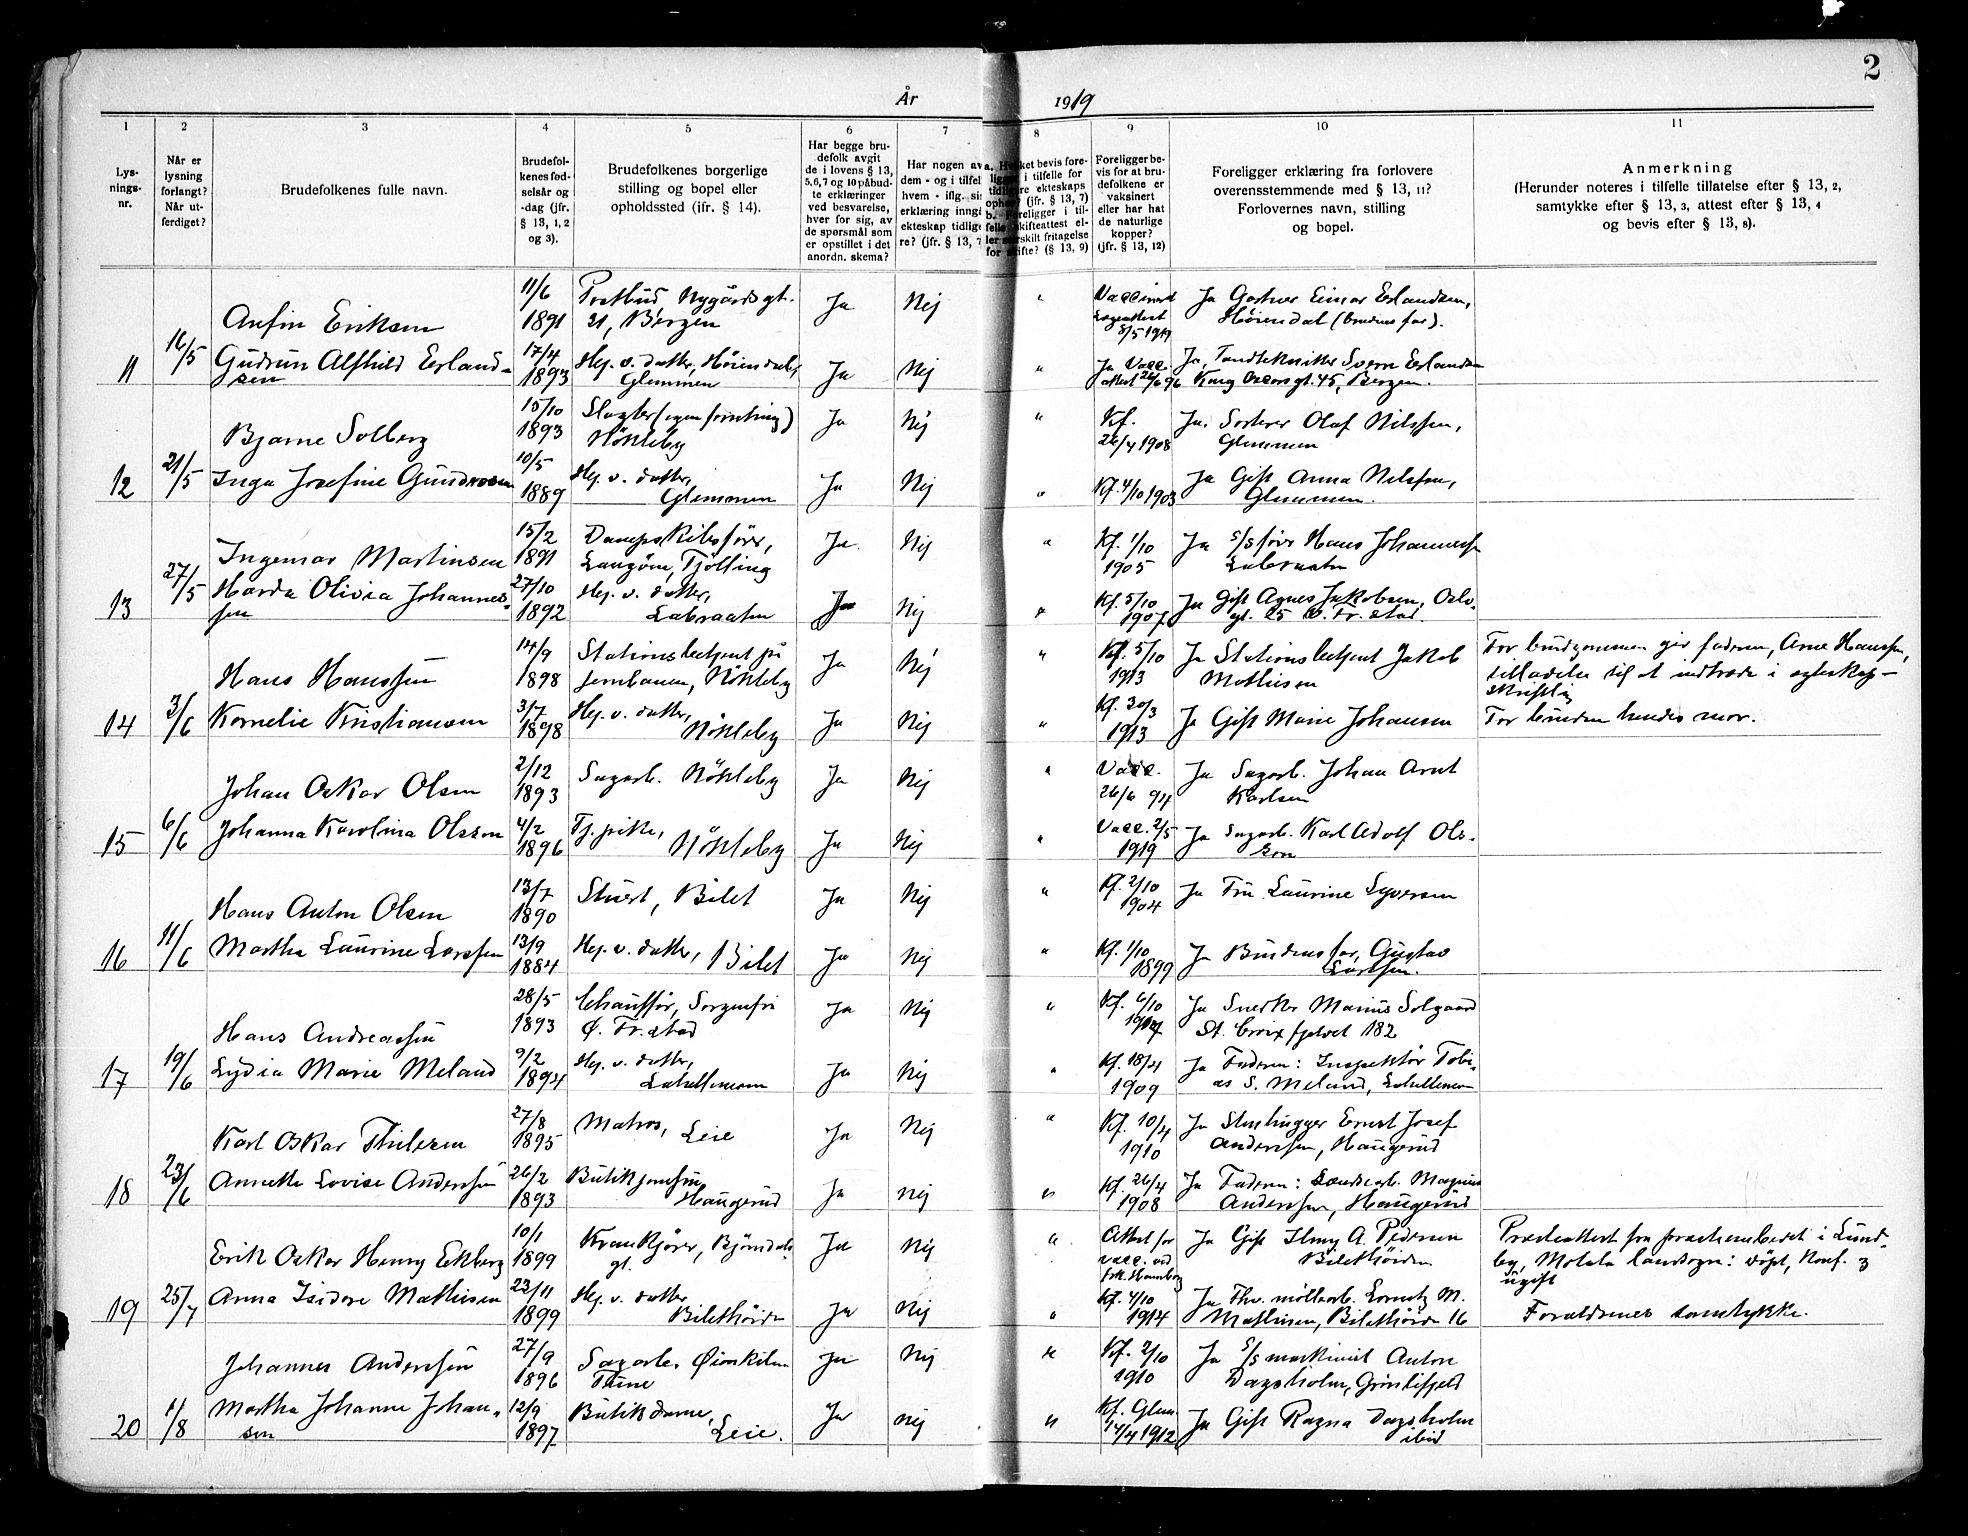 2
År 1919
1 2 3 4 5 6 7 8 9 10 11
Lys-
nings-
nr.
Når er
lysning
forlangt?
Når ut-
ferdiget?
Brudefolkenes fulle navn.
Brudefol-
kenes fød-
selsår og
-dag (jfr.
§ 13, 1, 2
og 3).
Brudefolkenes borgerlige
stilling og bopel eller
opholdssted (ifr. § 14).
Har begge bru-
defolk avgit
de i lovens § 13,
5,6,7 og 10 påbud-
te erklæringer
ved besvarelse,
hver for sig, av
de spørsmål som
er opstillet i det
anordn. skema?
Har nogen av
dem - og i tilfel
hvem - iflg. si
erklæring inngå
ekteskap tidlige
re? (jfr. § 13, 7
ket bevis fore-
i tilfelle for
ekteskaps
(jfr. § 13, 7)
b. Foreligger i til-
skifteattest el-
særskilt fritagelse
for skifte? (§ 13, 9)
Foreligger be-
vis for at bru-
defolkene er
vaksinert
eller har hat
de naturlige
kopper?
(jfr. § 13, 12)
Foreligger erklæring fra forlovere
overensstemmende med § 13, 11?
Forlovernes navn, stilling
og bopel.
Anmerkning
(Herunder noteres i tilfelle tillatelse efter § 13, 2,
samtykke efter § 13, 3, attest efter § 13, 4
og bevis efter § 13, 8).
11/6 Postbud, Nygårdsgt. Ja Nej " Ja Gartner Einar Erlandsen,
Anfin Eriksen 1891 21, Bergen 8/5 1919 Høiendal (brudens far).
11 16/5 Gudrun Alfhild Erland- 17/4 Hj. v. datter, Høiendal, Ja Nej " Ja Vacc. Ja, Tandtekniker Sverre Erlandsen
sen 1893 Glemmen attest 26/6 96 Kong Oscarsgt. 45, Bergen.
15/10 Slagter (egen forretning) Ja Nej " Kf. Ja. Sorterer Olaf Nilssen,
Bjarne Solberg 1893 Nökleby 26/4 1908 Glemmen
12 21/5 Inga Josefine Gundersen 10/5 Hj. v. datter, Ja Nej " Kf. 4/10 1903 Ja Gift Anna Nilssen,
1889 Glemmen Glemmen.
15/2 Ja Nej " Kf. 1/10 Ja S/S fører Hans Johannessen
Ingemar Martinsen 1891 Langöen, Tjölling 1905 Labraaten
13 27/5 Harda Olivia Johannes- 27/10 Hj. v. datter, Ja Nej " Kf. 5/10 Ja Gift Agnes Jakobsen, Oslo-
sen 1892 Labraaten 1907 gt. 25 Ø. Fr. stad.
14/9 Stationsbetjent på Ja Nej " Kf. 5/10 Ja Stationsbetjent Jakob For brudgommen gir faderen, Arne Hanssen,
Hans Hanssen 1898 jernbanen, Nökleby 1913 Mathisen tilladelse til at indtræde i egteskap -
skriftlig
14 3/6 Kornelie Kristiansen 3/7 Hj. v. datter, Ja Nej " Kf. 30/3 Ja Gift Marie Johansen For bruden hendes mor.
1898 Nökleby 1913
2/12 Sagarb. Nökleby Ja Nej " Vacc. Ja Sagarb. Johan Arnt
Johan Oskar Olsen 1893 26/6 94 Karlsen
15 6/6 Johanna Karolina Olsson 4/2 Tj. pike, Ja Nej " Vacc. 2/5 Ja Sagarb. Karl Adolf Ols-
1896 Nökleby 1919 son
13/7 Stuert, Bilet Ja Nej " Kf. 2/10 Ja Fru Laurine Syversen
Hans Anton Olsen 1890 1904
16 11/6 Martha Laurine Larssen 13/9 Hj. v. datter, Bilet Ja Nej " Kf. 1/10 Ja Brudens far, Gustav
1884 1899 Larssen.
28/5 Chauffør, Sorgenfri Ja Nej " Kf. 6/10 Ja Snekker Marius Solgaard
Hans Andreassen 1893 Ø. Fr. stad St. Croixfjeldet 182
17 19/6 Lydia Marie Meland 9/2 Hj. v. datter, Ja Nej " Kf. 18/4 Ja Faderen: Inspektør Tobi-
1894 Lahellemoen 1909 as S. Meland, Lahellemoen
27/8 Matros, Leie Ja Nej " Kf. 10/4 Ja Stenhugger Ernst Josef
Karl Oskar Thilesen 1895 1910 Anderssen, Haugerud
18 23/6 Annette Lovise Anderssen 26/2 Butikjomfru, Ja nej " Kf. 26/4 Ja Faderen: Magnus
1893 Haugerud 1908 Anderssen, Haugerud
10/1 Krankjører, Bjørndals- Ja Nej " Attest for Ja Gift Ilmy A. Pedersen Presteattest fra presteembedet i Lund-
Erik Oskar Henry Ekberg 1899 gt. vacc. ved Bilethöiden by, Motala landsogn: døpt, konf. og
ugift
19 25/7 Anna Isidore Mathisen 23/11 Hj. v. datter Ja nej " Kf. 4/10 Ja Fhv. møllearb. Lorentz M. Forældrenes samtykke.
1899 Bilethöiden 1914 Mathisen, Bilethöiden 16
27/9 Sagarb. Ja Nej " Kf. 2/10 Ja S/S maskinist Anton
Johannes Anderssen 1896 Tune 1910 Dagsholm, Grønlifjeld
20 1/8 Martha Johanne Johan- 12/9 Butikdame, Ja nej " Kf. Glem. Ja Gift Ragna Dagsholm
sen 1897 Leie. 14/4 1912 ibid